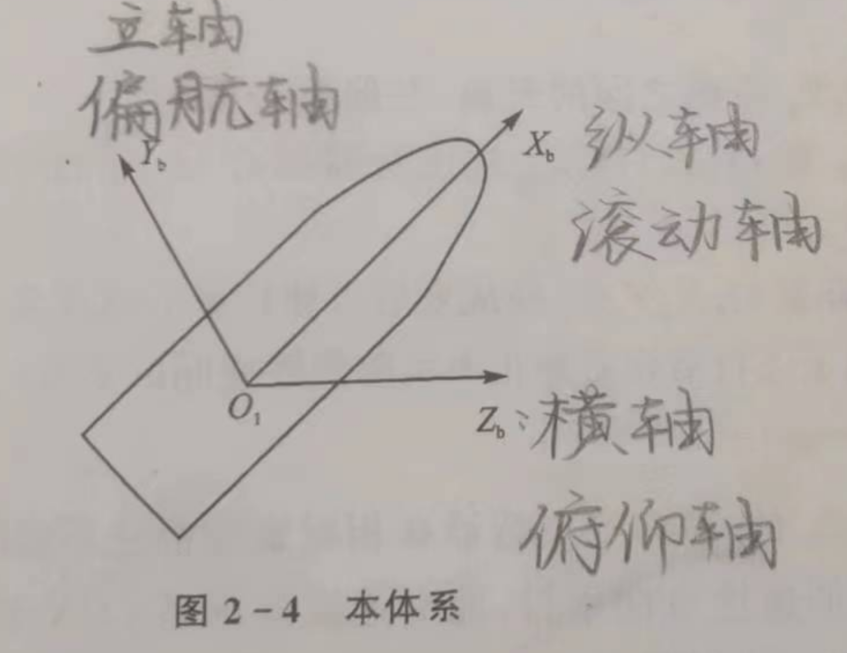 立轴
偏航轴
Yb
Xb 纵轴
滚动轴
O1
Zb：横轴
俯仰轴
图2-4 本体系